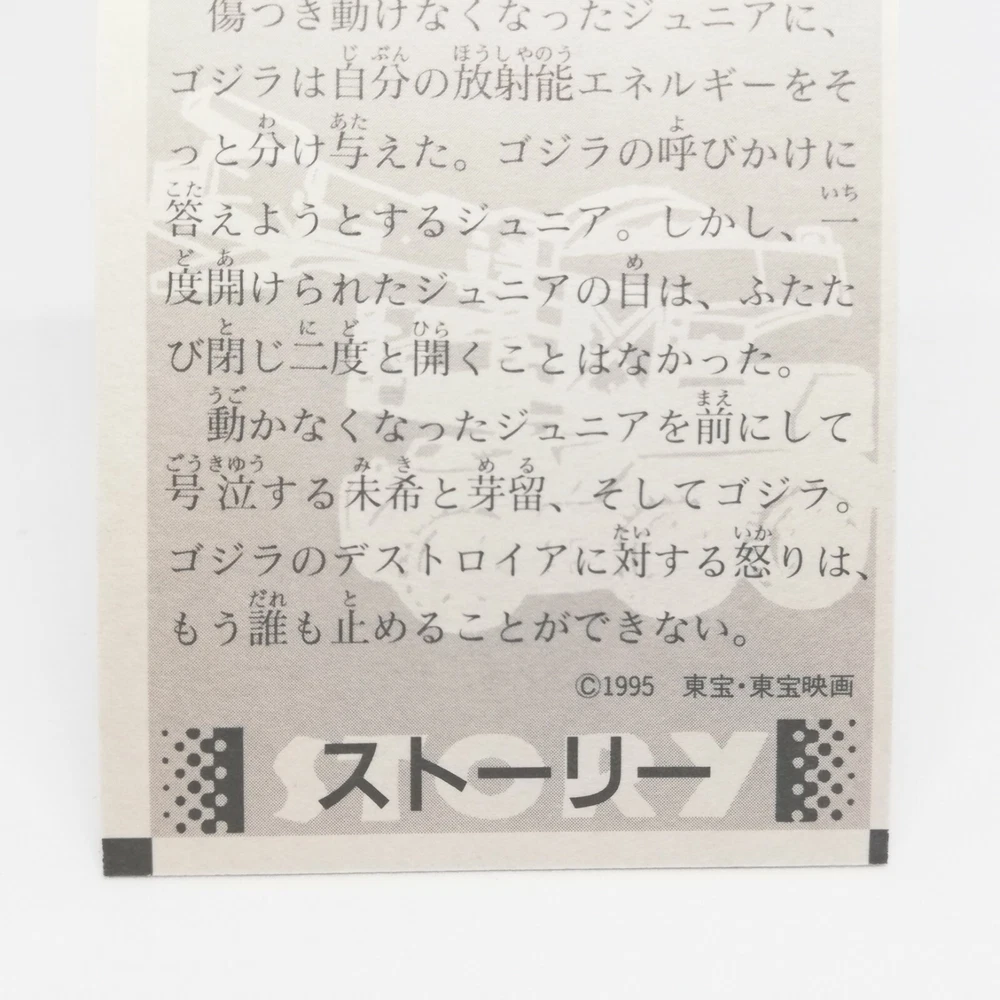 傷つき動けなくなったジュニアに、
ゴジラは自分の放射能エネルギーをそ
っと分け与えた。ゴジラの呼びかけに
答えようとするジュニア。しかし、一
度開けられたジュニアの目は、ふたた
び閉じ二度と開くことはなかった。
動かなくなったジュニアを前にして
号泣する未希と芽留、そしてゴジラ。
ゴジラのデストロイアに対する怒りは、
もう誰も止めることができない。
©1995 東宝・東宝映画
STORY
ストーリー